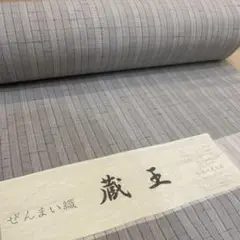 ぜんまい織
蔵王